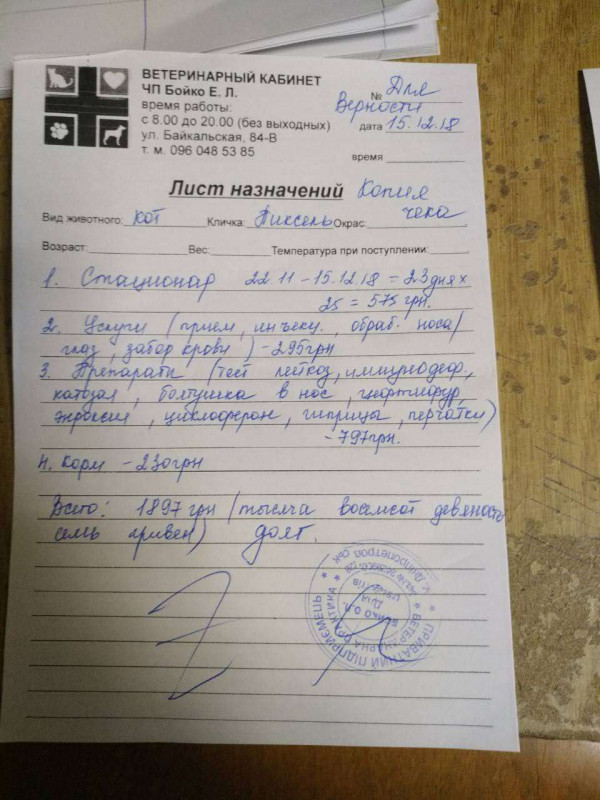 ВЕТЕРИНАРНЫЙ КАБИНЕТ
ЧП Бойко Е. Л.
время работы:
с 8.00 до 20.00 (без выходных)
ул. Байкальская, 84-В
т. м. 096 048 53 85
№ Для
Верности
дата 15.12.18
время
Лист назначений Копия
чека
Вид животного: кот Кличка: Пиксель Окрас:
Возраст: Вес: Температура при поступлении:
1. Стационар 22.11 – 15.12.18 = 23 дня х
25 = 575 грн.
2. Услуги (прием, инъекц., обраб. носа/
глаз, забор крови) – 295 грн
3. Препараты (тест лейкоз, иммунодеф.,
катозал, болтушка в нос, цефтиофур,
энроксил, циклоферон, шприцы, перчатки)
– 797 грн.
4. Корм – 230 грн
Всего: 1897 грн (тысяча восемсот девяносто
семь гривен) долг.
ПРИВАТНИЙ ПІДПРИЄМЕЦЬ
ВЕТЕРИНАРНА ПРАКТИКА
БОЙКО О.Л.
ДЛЯ